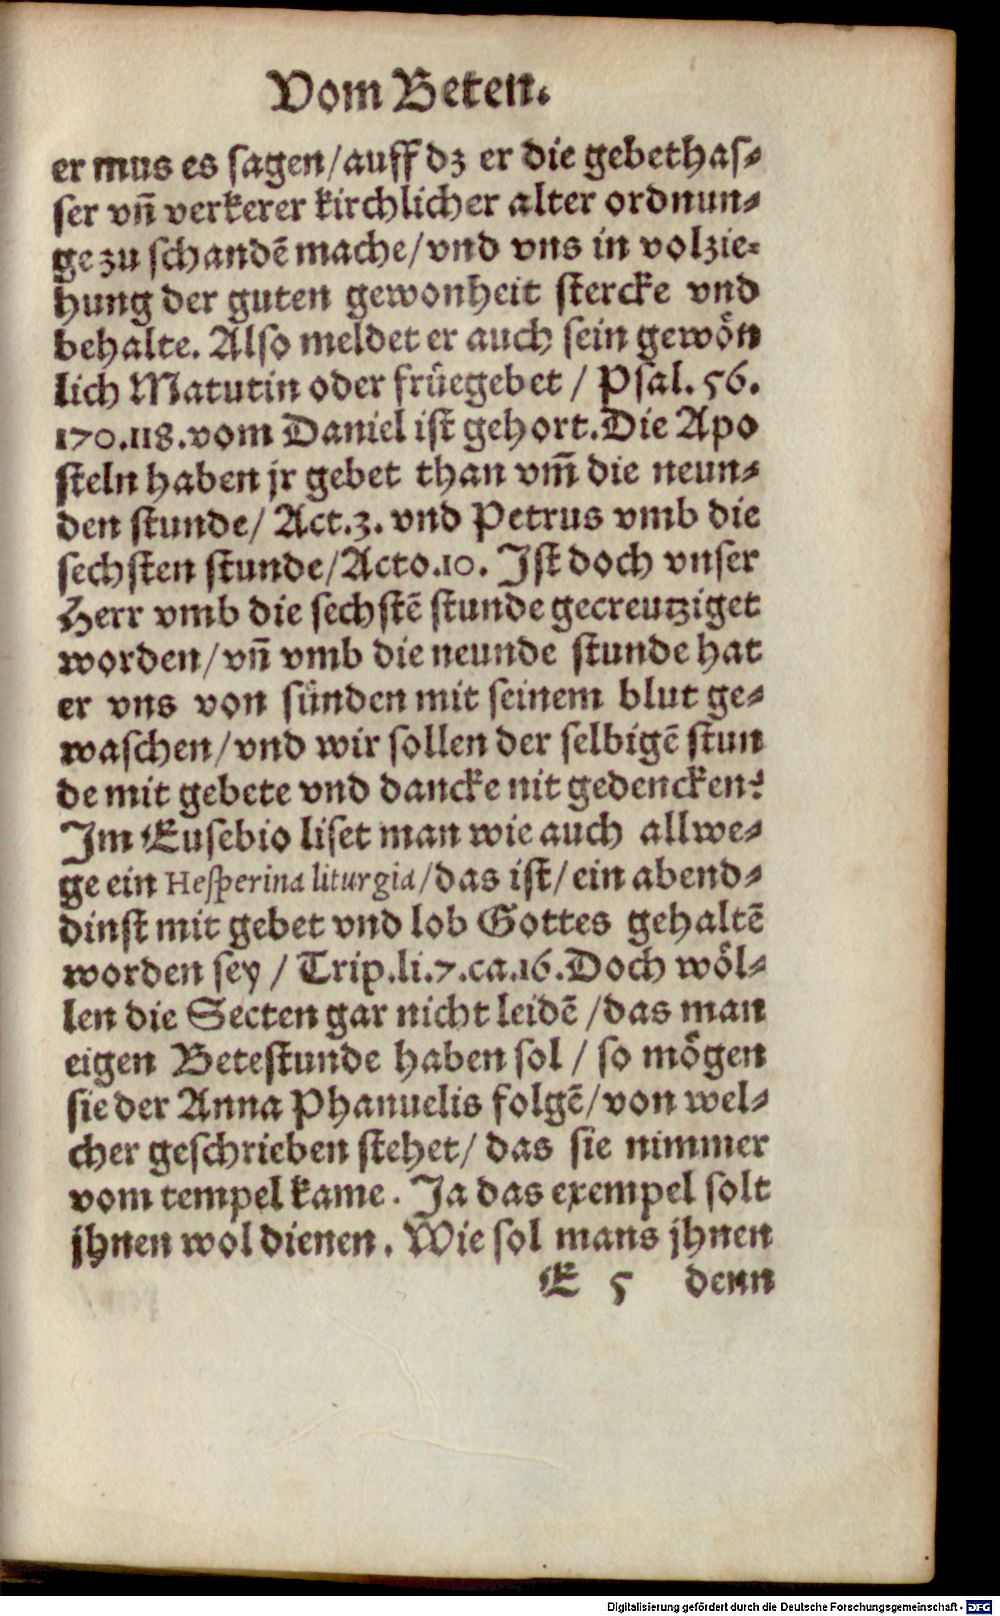 Vom Beten.
er mus es sagen/auff dz er die gebethas⸗
ser vñ verkerer kirchlicher alter ordnun⸗
ge zu schandẽ mache/vnd vns in volzie⸗
hung der guten gewonheit stercke vnd
behalte. Also meldet er auch sein gewön
lich Matutin oder früegebet / Psal. 56.
170.118.vom Daniel ist gehort.Die Apo
steln haben jr gebet than vm̃ die neun⸗
den stunde/ Act.3. vnd Petrus vmb die
sechsten stunde/Acto.10. Ist doch vnser
Herr vmb die sechstẽ stunde gecreutziget
worden/vñ vmb die neunde stunde hat
er vns von sünden mit seinem blut ge⸗
waschen/vnd wir sollen der selbigẽ stun
de mit gebete vnd dancke nit gedencken?
Im Eusebio liset man wie auch allwe⸗
ge ein Hesperina liturgia/das ist/ein abend⸗
dinst mit gebet vnd lob Gottes gehaltẽ
worden sey / Trip.li.7.ca.16.Doch wöl⸗
len die Secten gar nicht leidẽ /das man
eigen Betestunde haben sol / so mögen
sie der Anna Phanuelis folgẽ/von wel⸗
cher geschrieben stehet/ das sie nimmer
vom tempel kame. Ja das exempel solt
jhnen wol dienen. Wie sol mans jhnen
E 5 denn
Digitalisierung gefördert durch die Deutsche Forschungsgemeinschaft - DFG